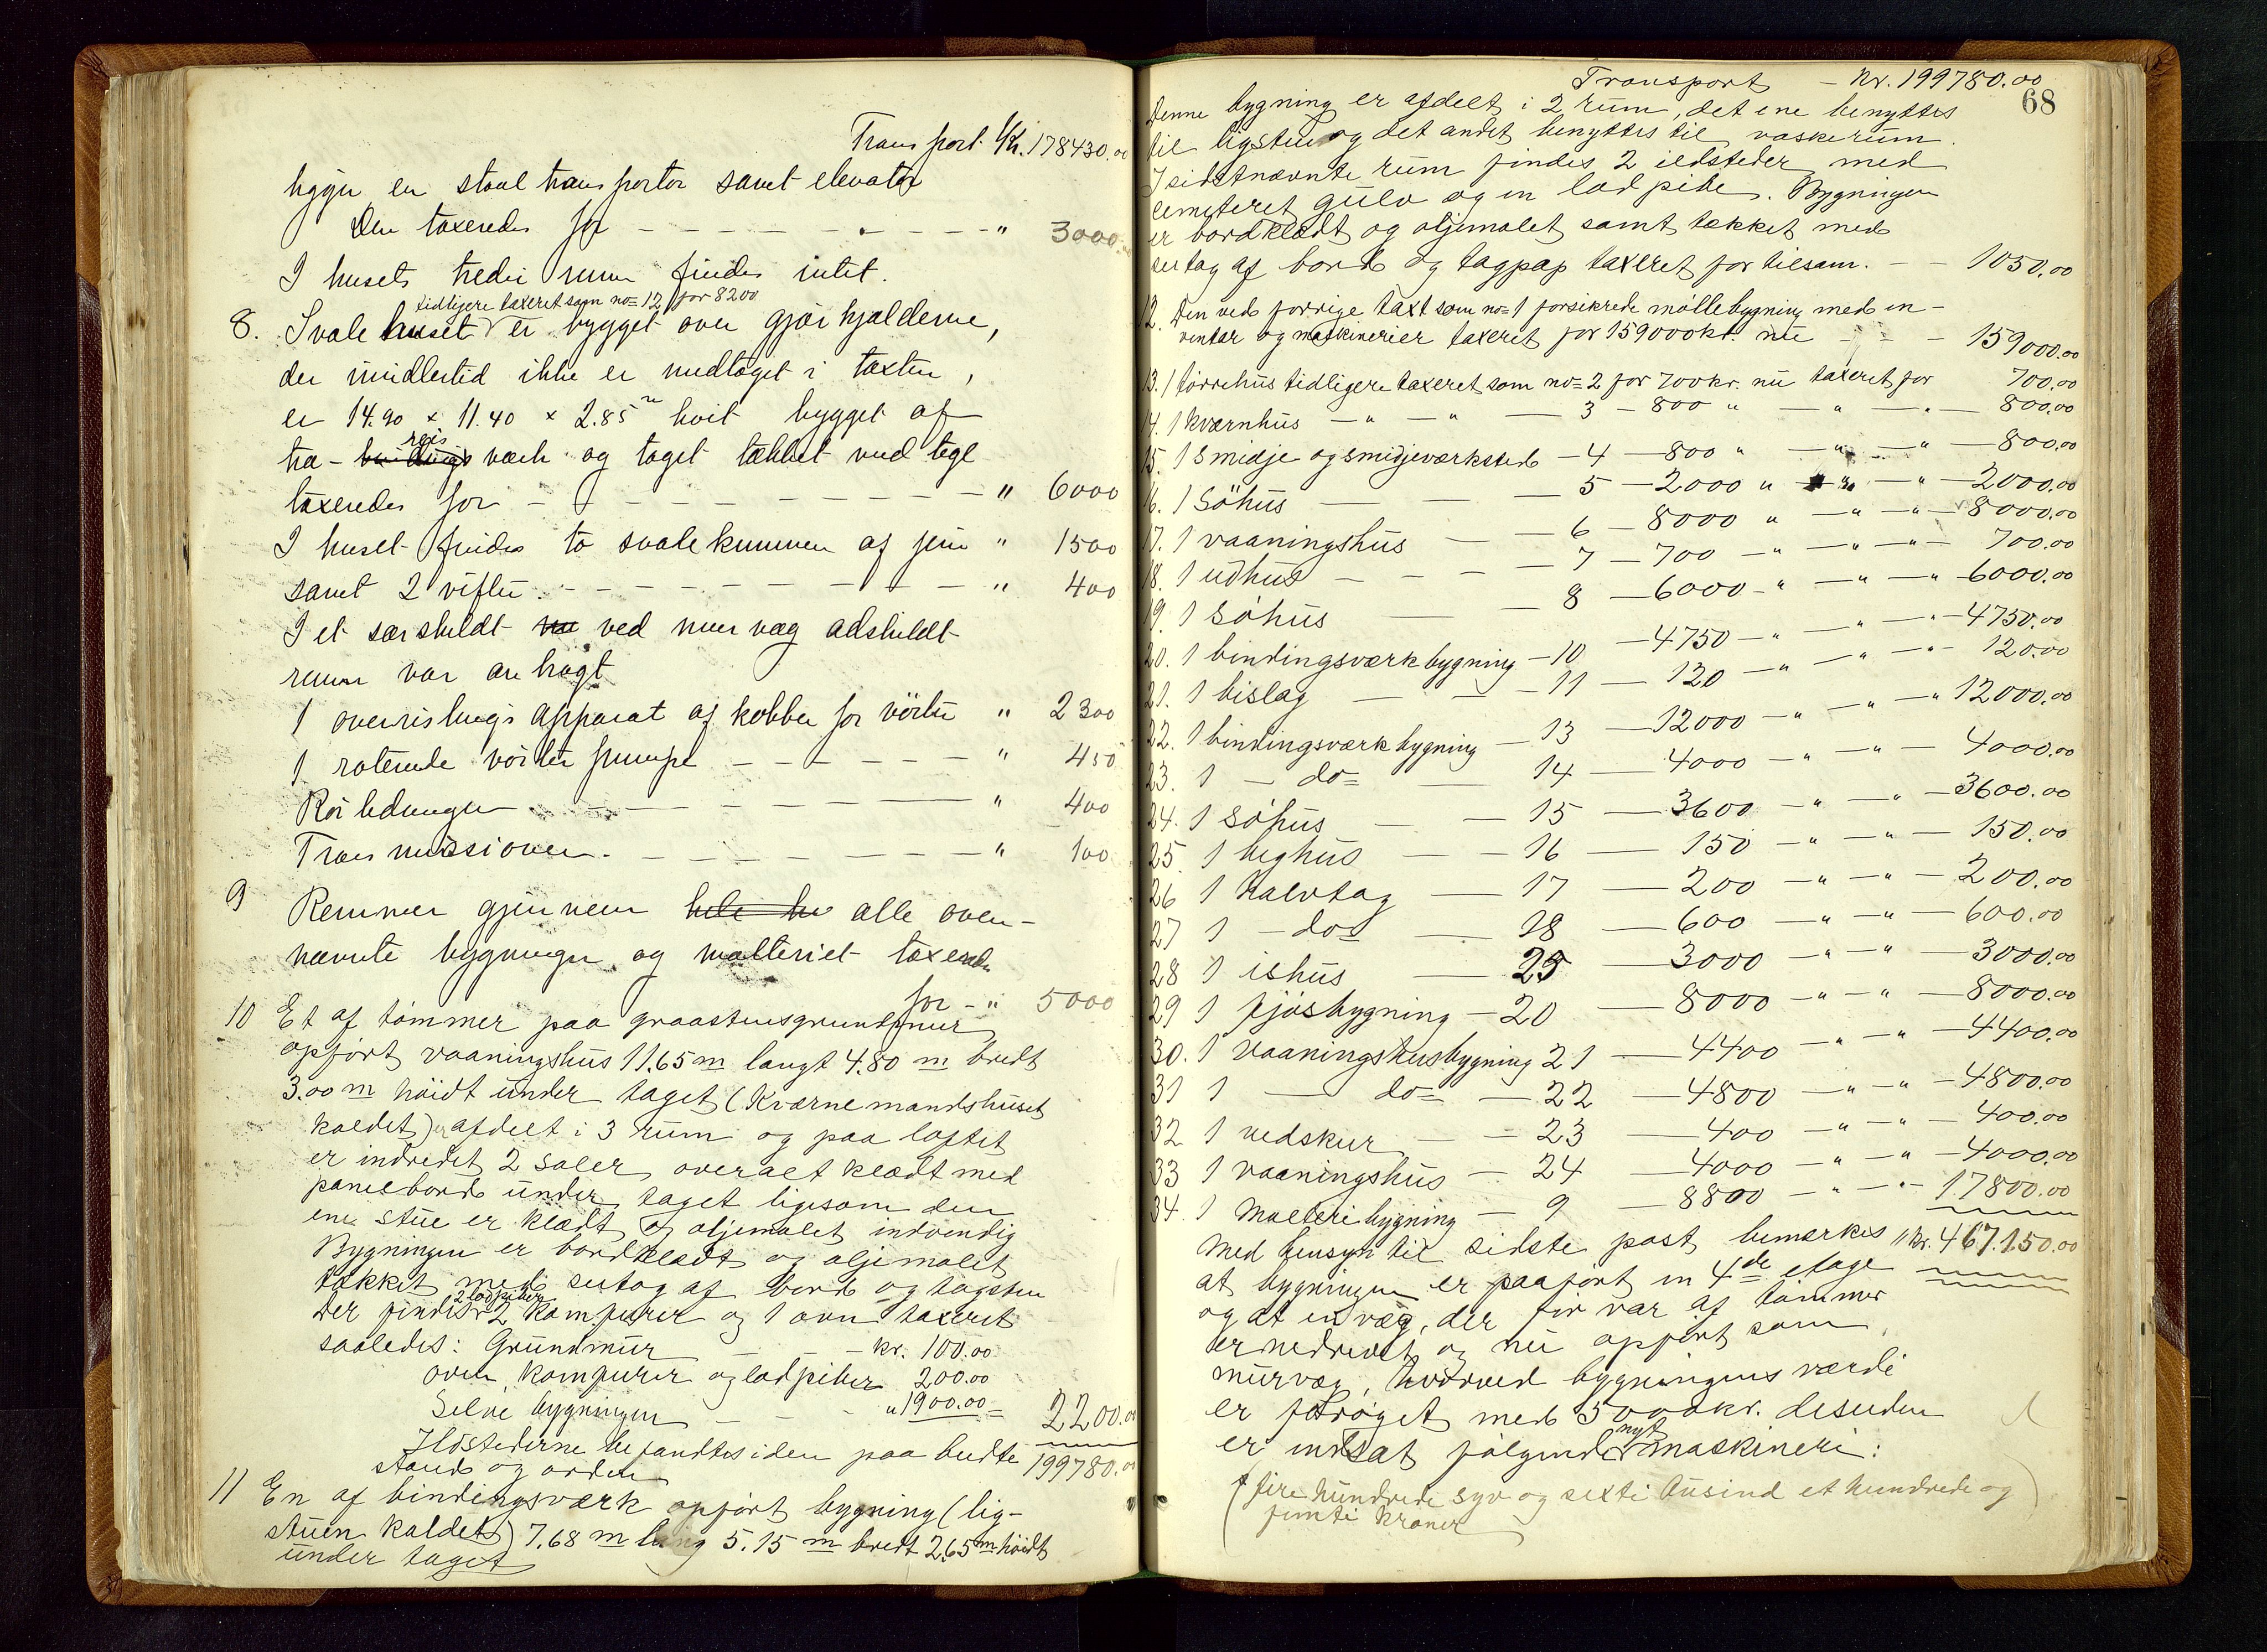 Transport Kr. 178430.00
hgyn en staal transportør samt elevator
Den taxeredes for — — — — " 3000
I husets tredie rum findes intet.
tidligere taxeret som no= 12 for 8200
8. Svalehuset er bygget over gjærkjælderne,
der imidlertid ikke er medtaget i taxten,
er 14.90 x 11.40 x 2.85 m hvit bygget af
reis
træ-bindings værk og taget tækket med tegl
taxeredes for — — — — " 6000
I huset findes to svalekummer af jern " 1500
samt 2 vifter. — — — — " 400
I et særskildt ved murvæg adskildt
rum var anbragt
1 overrislings apparat af kobber for vörter " 2300
1 roterende vörter pumpe — — — " 450
Rörledninger — — — " 400
Transmissionen. — — — — " 100
9 Remmer gjennem hele hu alle oven-
nævnte bygninger og malteriet taxeredes
for - " 5000
10 Et af tömmer paa graastensgrundmur
opfört vaaningshus 11.65 m langt 4.80 m bredt
3.00 m höidt under taget (Kværnemandshuset
kaldet) er afdelt i 3 rum og paa loftet
er indredet 2 saler, overalt klædt med
panelbord under taget ligesom den
ene stue er klædt og oljemalet indvendig
Bygningen er bordklædt og oljemalet
tækket med sutag af bord og tagsten
2 lodpiber
Der findes 2 komfurer og 1 ovn taxeret
saaledes: Grundmur — — kr. 100.00
ovn, komfurer og lodpiber 200.00
Selve bygningen — — " 1900.00 = 2200.00
Ildstederne befandtes iden paa budte 199780.00
stand og orden
11 En af bindingsværk opfört bygning (lig-
stuen kaldet) 7.68 m lang 5.15 m bredt 2.65 m höidt
under taget
Transport — Kr. 199780.00
68
Denne bygning er afdelt i 2 rum, det ene benyttes
til ligstue og det andet benyttes til vaskerum.
I sidstnævnte rum findes 2 ildsteder med
cementeret gulv og en lodpibe. Bygningen
er bordklædt og oljemalet samt tækket med
sutag af bord og tagpap taxeret for tilsam. — — 1050.00
12. Den ved forrige taxt som no= 1 forsikrede möllebygning med in-
ventar og maskinerier taxeret for 159000 kr. nu — — 159000.00
13. 1 törrehus tidligere taxeret som no= 2 for 700 kr. nu taxeret for 700.00
14. 1 kværnhus — " — " — 3 — 800 " — " — " — 800.00
15. 1 Smidje og smidjeværksted — 4 — 800 " — " — " — 800.00
16. 1 Söhus — — 5 — 2000 " — " — " — 2000.00
17. 1 vaaningshus — 6 — 8000 " — " — " — 8000.00
18. 1 udhus — — — 7 — 700 — " — " — " — 700.00
19. 1 söhus — — 8 — 6000 — " — " — " 6000.00
20. 1 bindingsværkbygning — 10 — 4750 — " — " — " — 4750.00
21. 1 bislag — — 11 — 120 — " — " — " — 120.00
22. 1 bindingsværkbygning — 13 — 12000 — " — " — " 12000.00
23. 1 — do= — 14 — 4000 — " — " — 4000.00
24. 1 söhus — — 15 — 3600 — " — " — 3600.00
25. 1 beghus — — 16 — 150 — " — " — 150.00
26 1 Halvtag — 17 — 200 — " — " — 200.00
27 1 — do= — 18 — 600 — " — " — 600.00
28 1 ishus — 25 — 3000 — " — " — 3000.00
29 1 fjösbygning — 20 — 8000 — " — " — 8000.00
30. 1 vaaningshusbygning 21 — 4400 — " — " — 4400.00
31 1 — do= — 22 — 4800 — " — " — 4800.00
32 1 vedskur — — 23 — 400 — " — " — 400.00
33 1 vaaningshus — 24 — 4000 — " — " — 4000.00
34. 1 Malteribygning — 9 — 8800 — " — " — 17800.00
Med hensyn til sidste post bemærkes Kr. 467.150.00
at bygningen er paafört en 4de etage
og at en væg, der för var af tömmer
er nedrevet og nu opfört som
murvæg, hvorved bygningens værdi
er foröget med 5000 kr. desuden
nyt
er indsat fölgende maskineri:
(fire hundrede syv og sexti tusind et hundrede og
femti kroner)